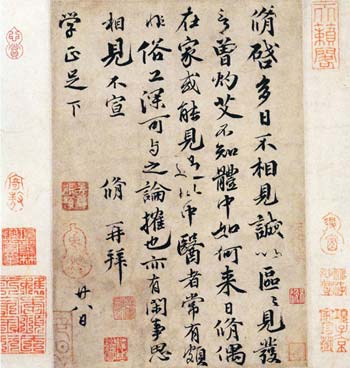 脩啓多日不相見誠以區〻見發
言曾灼艾不知體中如何来日脩偶
在家或能見過此中醫者常有頗
非俗工深可與之論搉也亦有閑事思
相見不宣 脩再拜
学正足下 廿八日
天籟閣